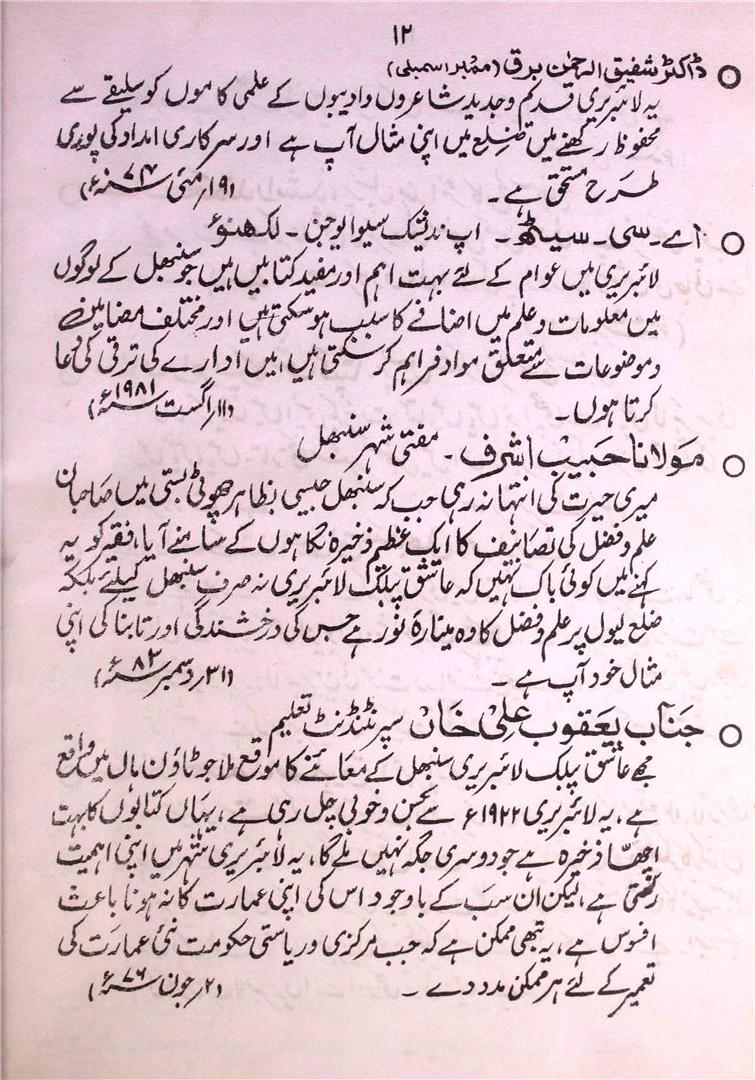 ۱۲
ڈاکٹر شفیق الرحمٰن برق (ممبر اسمبلی)
یہ لائبریری قدیم وجدید شاعروں وادیبوں کے علمی کاموں کو سلیقے سے
محفوظ رکھنے میں ضلع میں اپنی مثال آپ ہے اور سرکاری امداد کی پوری
طرح مستحق ہے۔
(۱۹؍مئی ۷۴ء)
اے۔ سی۔ سیٹھ۔ اپ ندیشک سیوا یوجن۔ لکھنؤ
لائبریری میں عوام کے لئے بہت اہم اور مفید کتابیں ہیں جو سنبھل کے لوگوں
میں معلومات وعلم میں اضافے کا سبب ہوسکتی ہیں اور مختلف مضامین
وموضوعات سے متعلق مواد فراہم کرسکتی ہیں، میں ادارے کی ترقی کی دعا
کرتا ہوں۔
(۱۱؍اگست ۱۹۸۱ء)
مولانا حبیب اشرف۔ مفتی شہر سنبھل
میری حیرت کی انتہا نہ رہی جب کہ سنبھل جیسی بظاہر چھوٹی بستی میں صاحبان
علم وفضل کی تصانیف کا ایک عظیم ذخیرہ نگاہوں کے سامنے آیا، فقیر کو یہ
کہنے میں کوئی باک نہیں کہ عاشق پبلک لائبریری نہ صرف سنبھل کیلئے بلکہ
ضلع لیول پر علم وفضل کا وہ مینارۂ نور ہے جس کی درخشندگی اور تابناکی اپنی
مثال خود آپ ہے۔
(۳۱؍دسمبر ۸۲ء)
جناب یعقوب علی خاں سپرنٹنڈنٹ تعلیم
مجھے عاشق پبلک لائبریری سنبھل کے معائنے کا موقع ملا جو ٹاؤن ہال میں واقع
ہے، یہ لائبریری ۱۹۲۲ء سے بحسن وخوبی چل رہی ہے، یہاں کتابوں کا بہت
اچھا ذخیرہ ہے جو دوسری جگہ نہیں ملے گا، یہ لائبریری شہر میں اپنی اہمیت
رکھتی ہے، لیکن ان سب کے باوجود اس کی اپنی عمارت کا نہ ہونا باعث
افسوس ہے، یہ تبھی ممکن ہے کہ جب مرکزی وریاستی حکومت نئی عمارت کی
تعمیر کے لئے ہر ممکن مدد دے۔
(۲؍جون ۷۶ء)